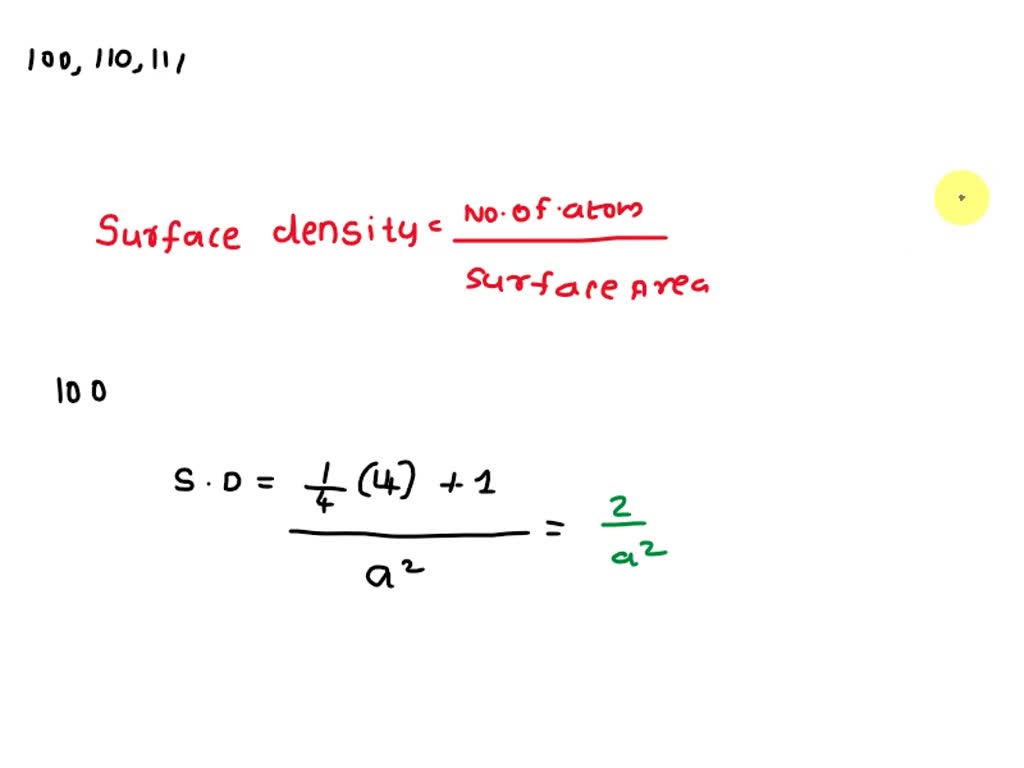 100, 110, 111
Surface density = No. of. atom / Surface Area
100
S.D = 1/4 (4) + 1 / a² = 2 / a²